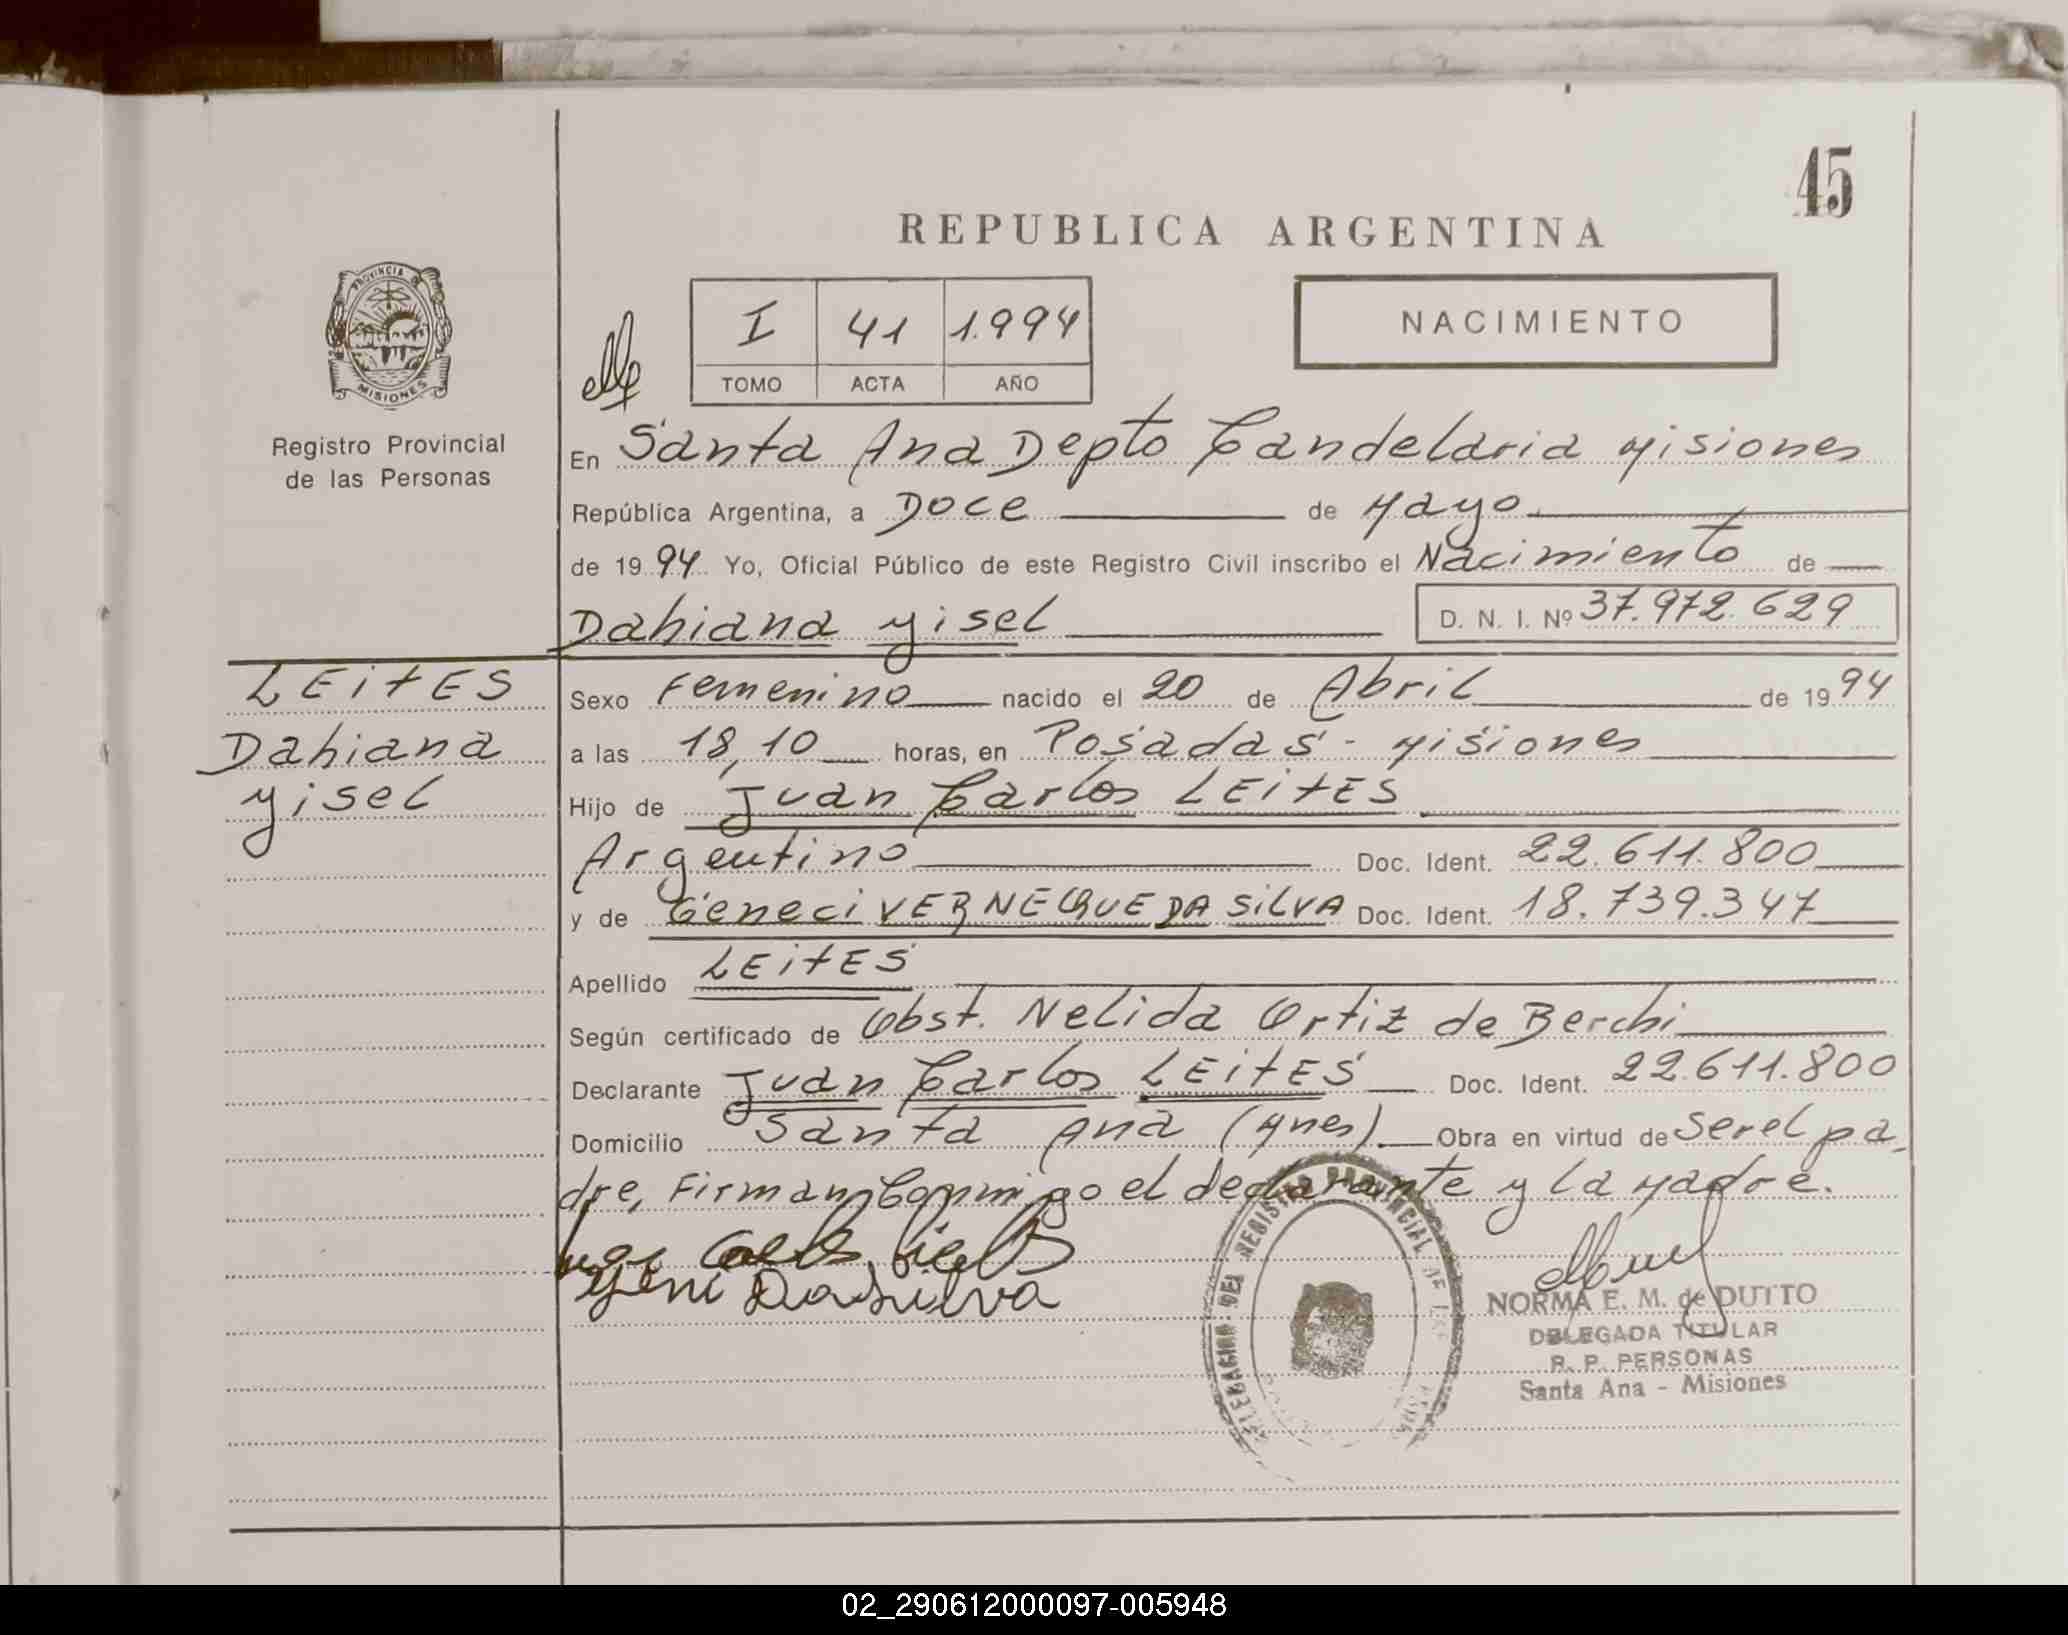 45
REPUBLICA ARGENTINA
PROVINCIA
MISIONES
Registro Provincial
de las Personas
I 41 1.994
TOMO ACTA AÑO
NACIMIENTO
En Santa Ana Depto Candelaria Misiones
República Argentina, a Doce de Mayo
de 1994 Yo, Oficial Público de este Registro Civil inscribo el Nacimiento de
Dahiana Yisel D. N. I. Nº 37.972.629
LEITES
Dahiana
Yisel
Sexo Femenino nacido el 20 de Abril de 1994
a las 18,10 horas, en Posadas - Misiones
Hijo de Juan Carlos LEITES
Argentino Doc. Ident. 22.611.800
y de Geneci VERNEQUE DA SILVA Doc. Ident. 18.739.347
Apellido LEITES
Según certificado de Obst. Nelida Ortiz de Berchi
Declarante Juan Carlos LEITES Doc. Ident. 22.611.800
Domicilio Santa Ana (Mnes). Obra en virtud de ser el pa
dre, Firman Conmigo el declarante y la Madre.
Yeni Da Silva
DELEGACION DEL REGISTRO PROVINCIAL DE LAS
NORMA E. M. de DUTTO
DELEGADA TITULAR
R. P. PERSONAS
Santa Ana - Misiones
02_290612000097-005948